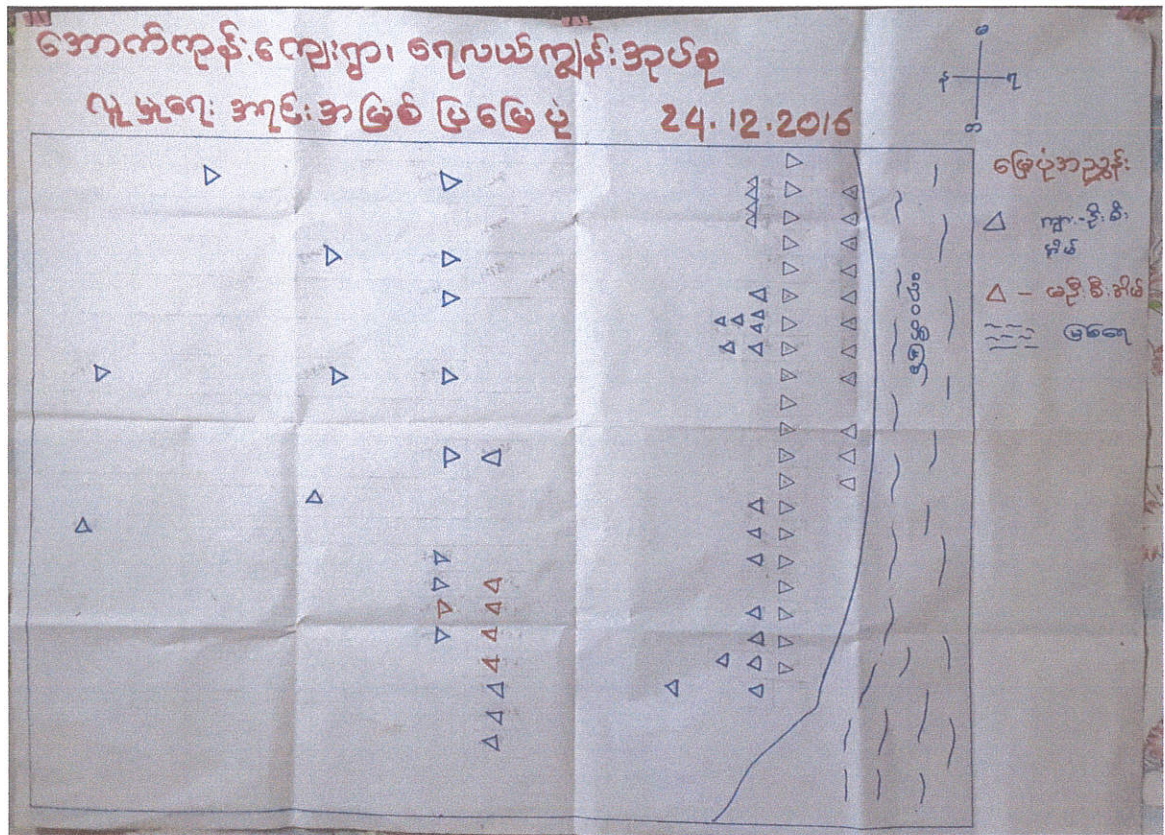 အောက်ကုန်းကျေးရွာ၊ ရေလယ်ကျွန်းအုပ်စု
လူမှုရေး အရင်းအမြစ် ပြမြေပုံ 24.12.2016
မြေပုံအညွှန်း
ကျား-ဦးစီး
အိမ်
- မဦးစီးအိမ်
မြစ်ရေ
ဧရာဝတီ